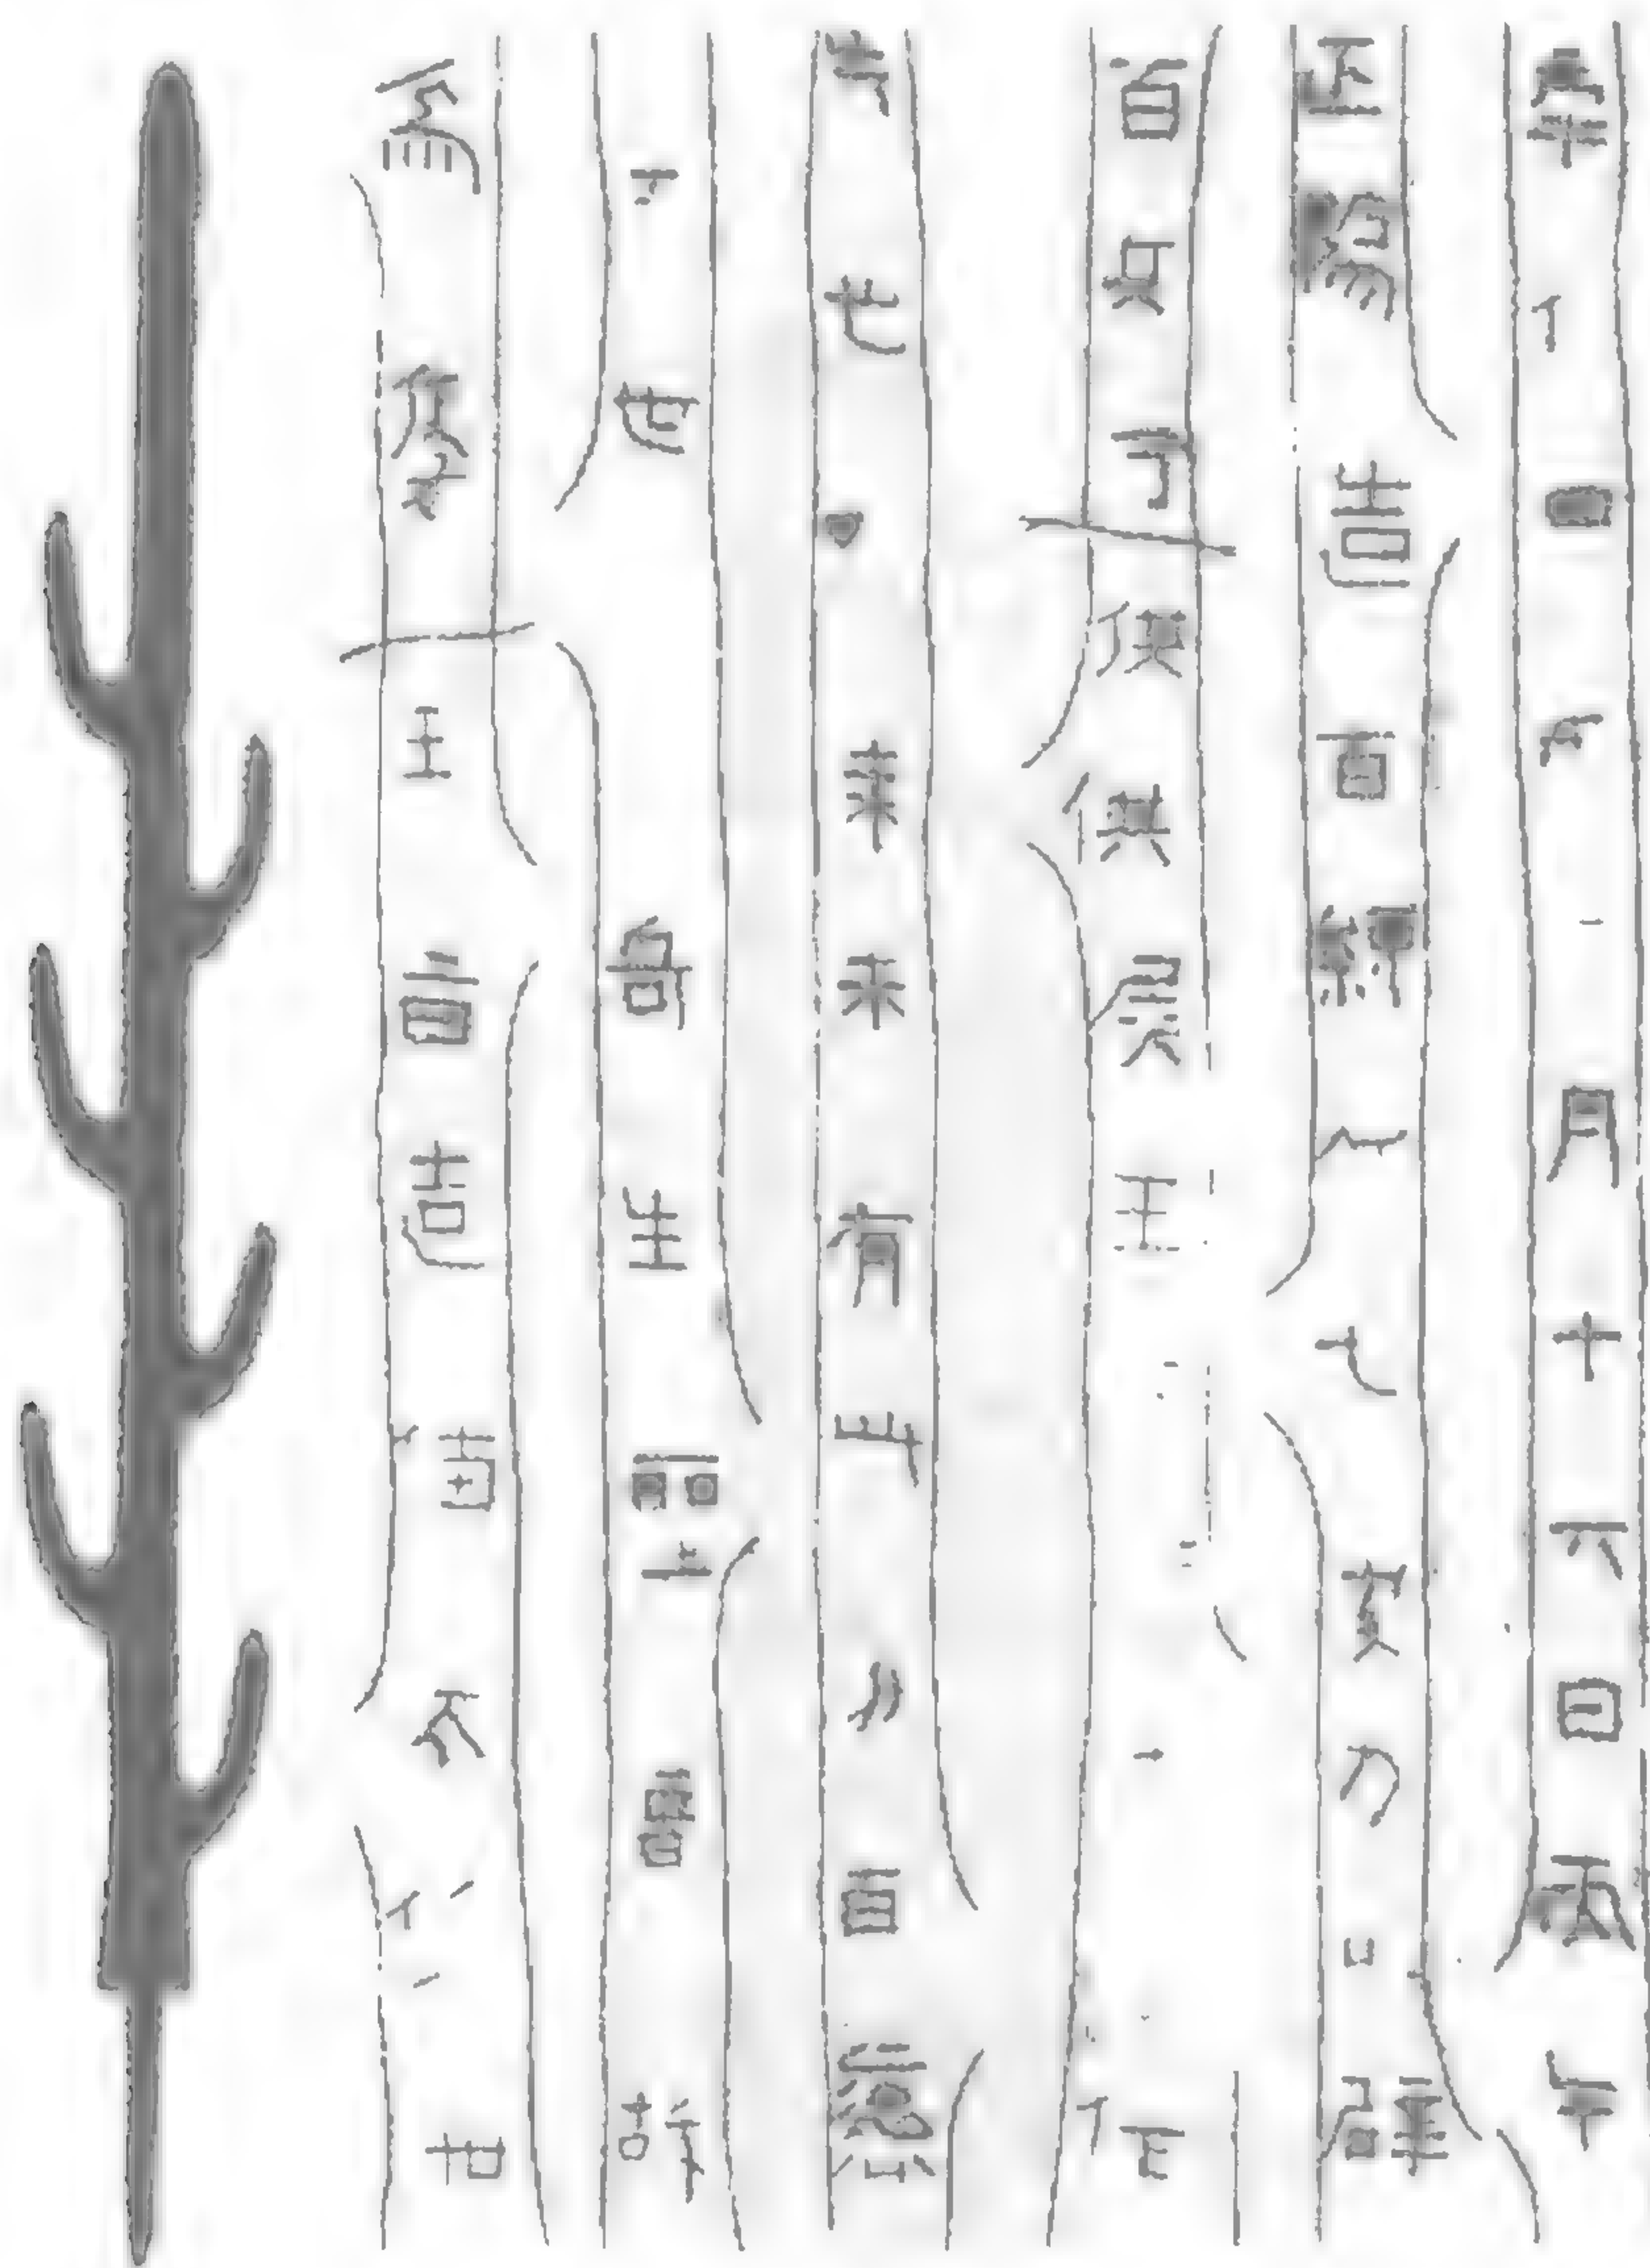 泰四月十六日丙午
正陽造百練七支刀辟
百兵供供侯王作
先世以来未有此刀百濨
世奇生聖音故
為倭王旨造傳不世